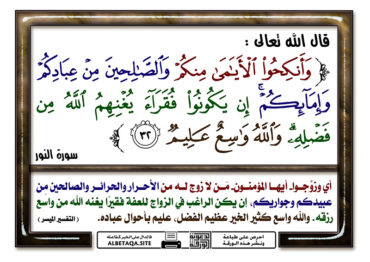 قال الله تعالى :
﴿ وَأَنكِحُوا۟ ٱلْأَيَـٰمَىٰ مِنكُمْ وَٱلصَّـٰلِحِينَ مِنْ عِبَادِكُمْ
وَإِمَآئِكُمْ ۚ إِن يَكُونُوا۟ فُقَرَآءَ يُغْنِهِمُ ٱللَّهُ مِن
فَضْلِهِۦ ۗ وَٱللَّهُ وَٰسِعٌ عَلِيمٌ ٣٢ ﴾
سورة النور
أي وزوِّجوا- أيها المؤمنون- مَن لا زوج له من الأحرار والحرائر والصالحين من
عبيدكم وجواريكم، إن يكن الراغب في الزواج للعفة فقيرًا يغنه الله من واسع
رزقه. والله واسع كثير الخير عظيم الفضل، عليم بأحوال عباده. ( التفسير الميسر )
ALBETAQA.SITE
احرص على طباعة
ونشر هذه الورقة